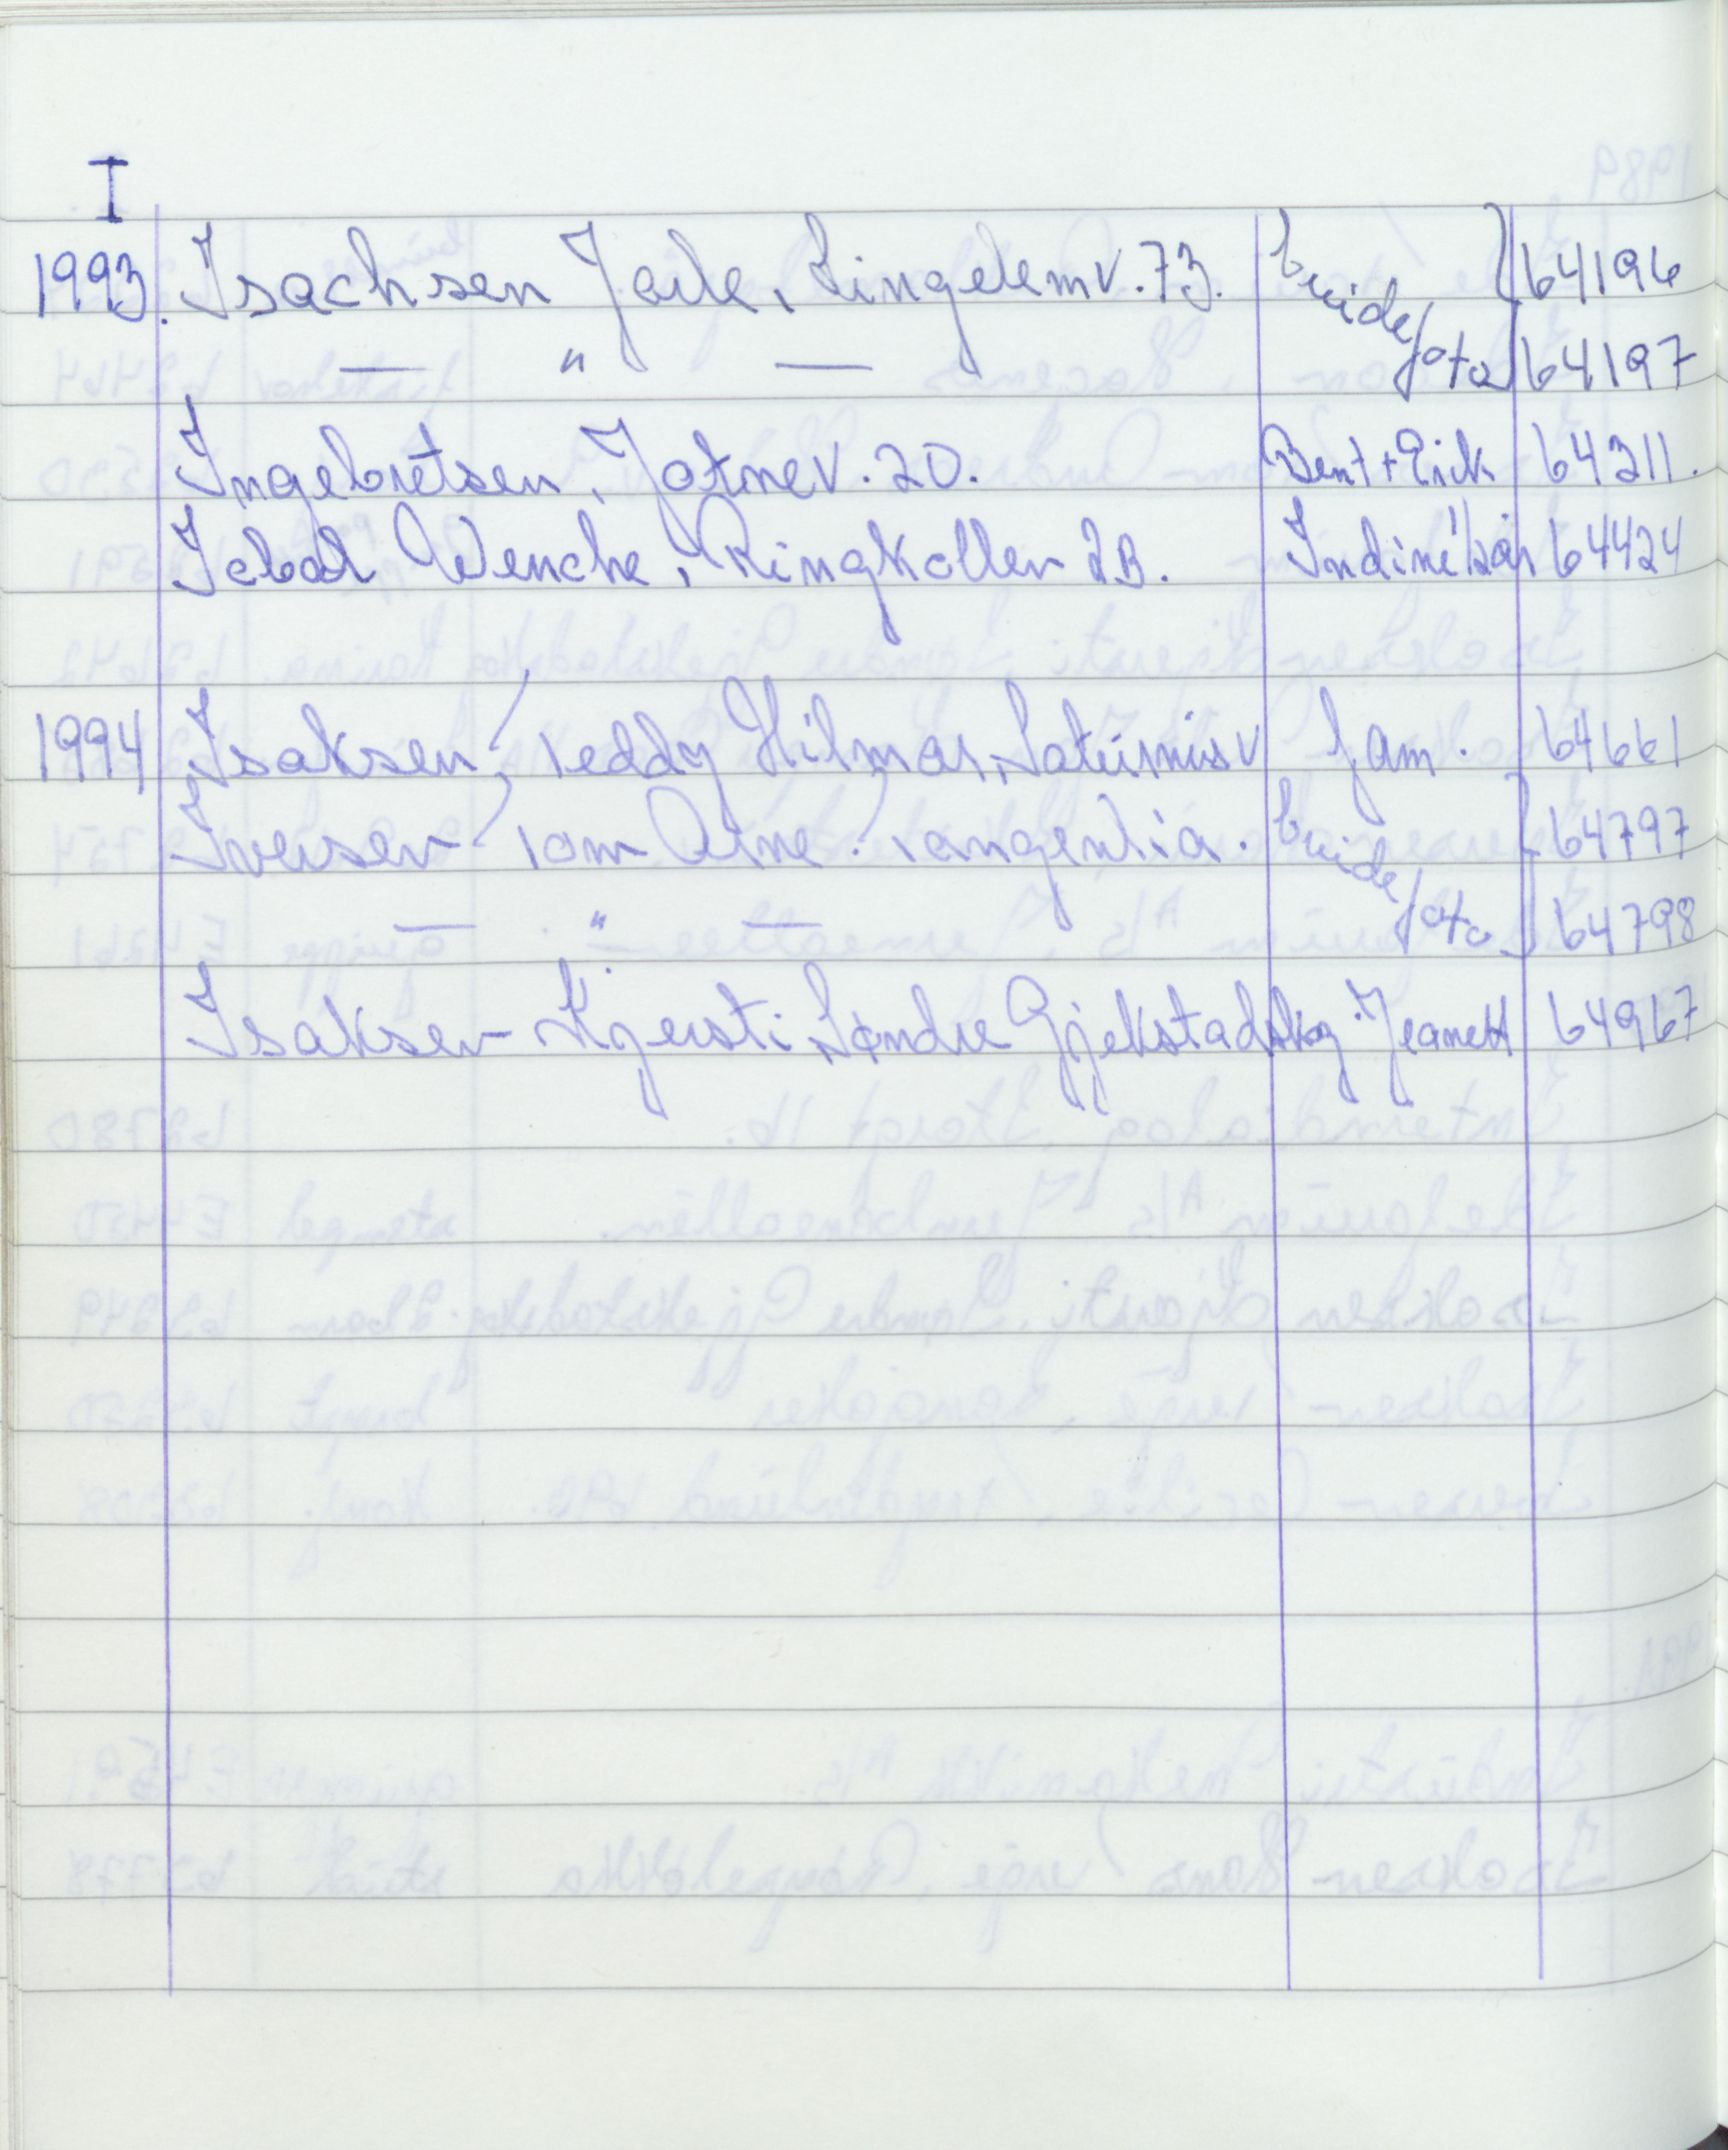 I
1993. Isachsen Jarle, Lingelemv. 73. brude 64196
— " — foto 64197
Ingebretsen, Jotnev. 20. Bent + Erik 64311.
Icbal Wenche, Ringkollen 2B. Indine 1/2 år 64424
1994 Isaksen, Teddy Hilmar, Saturnusv fam. 64661
Iversen Tom Arne, Tangenlia. brude 64797
— " — foto 64798
Isaksen Kjersti, Søndre Gjekstadskog. Jeanett 64967